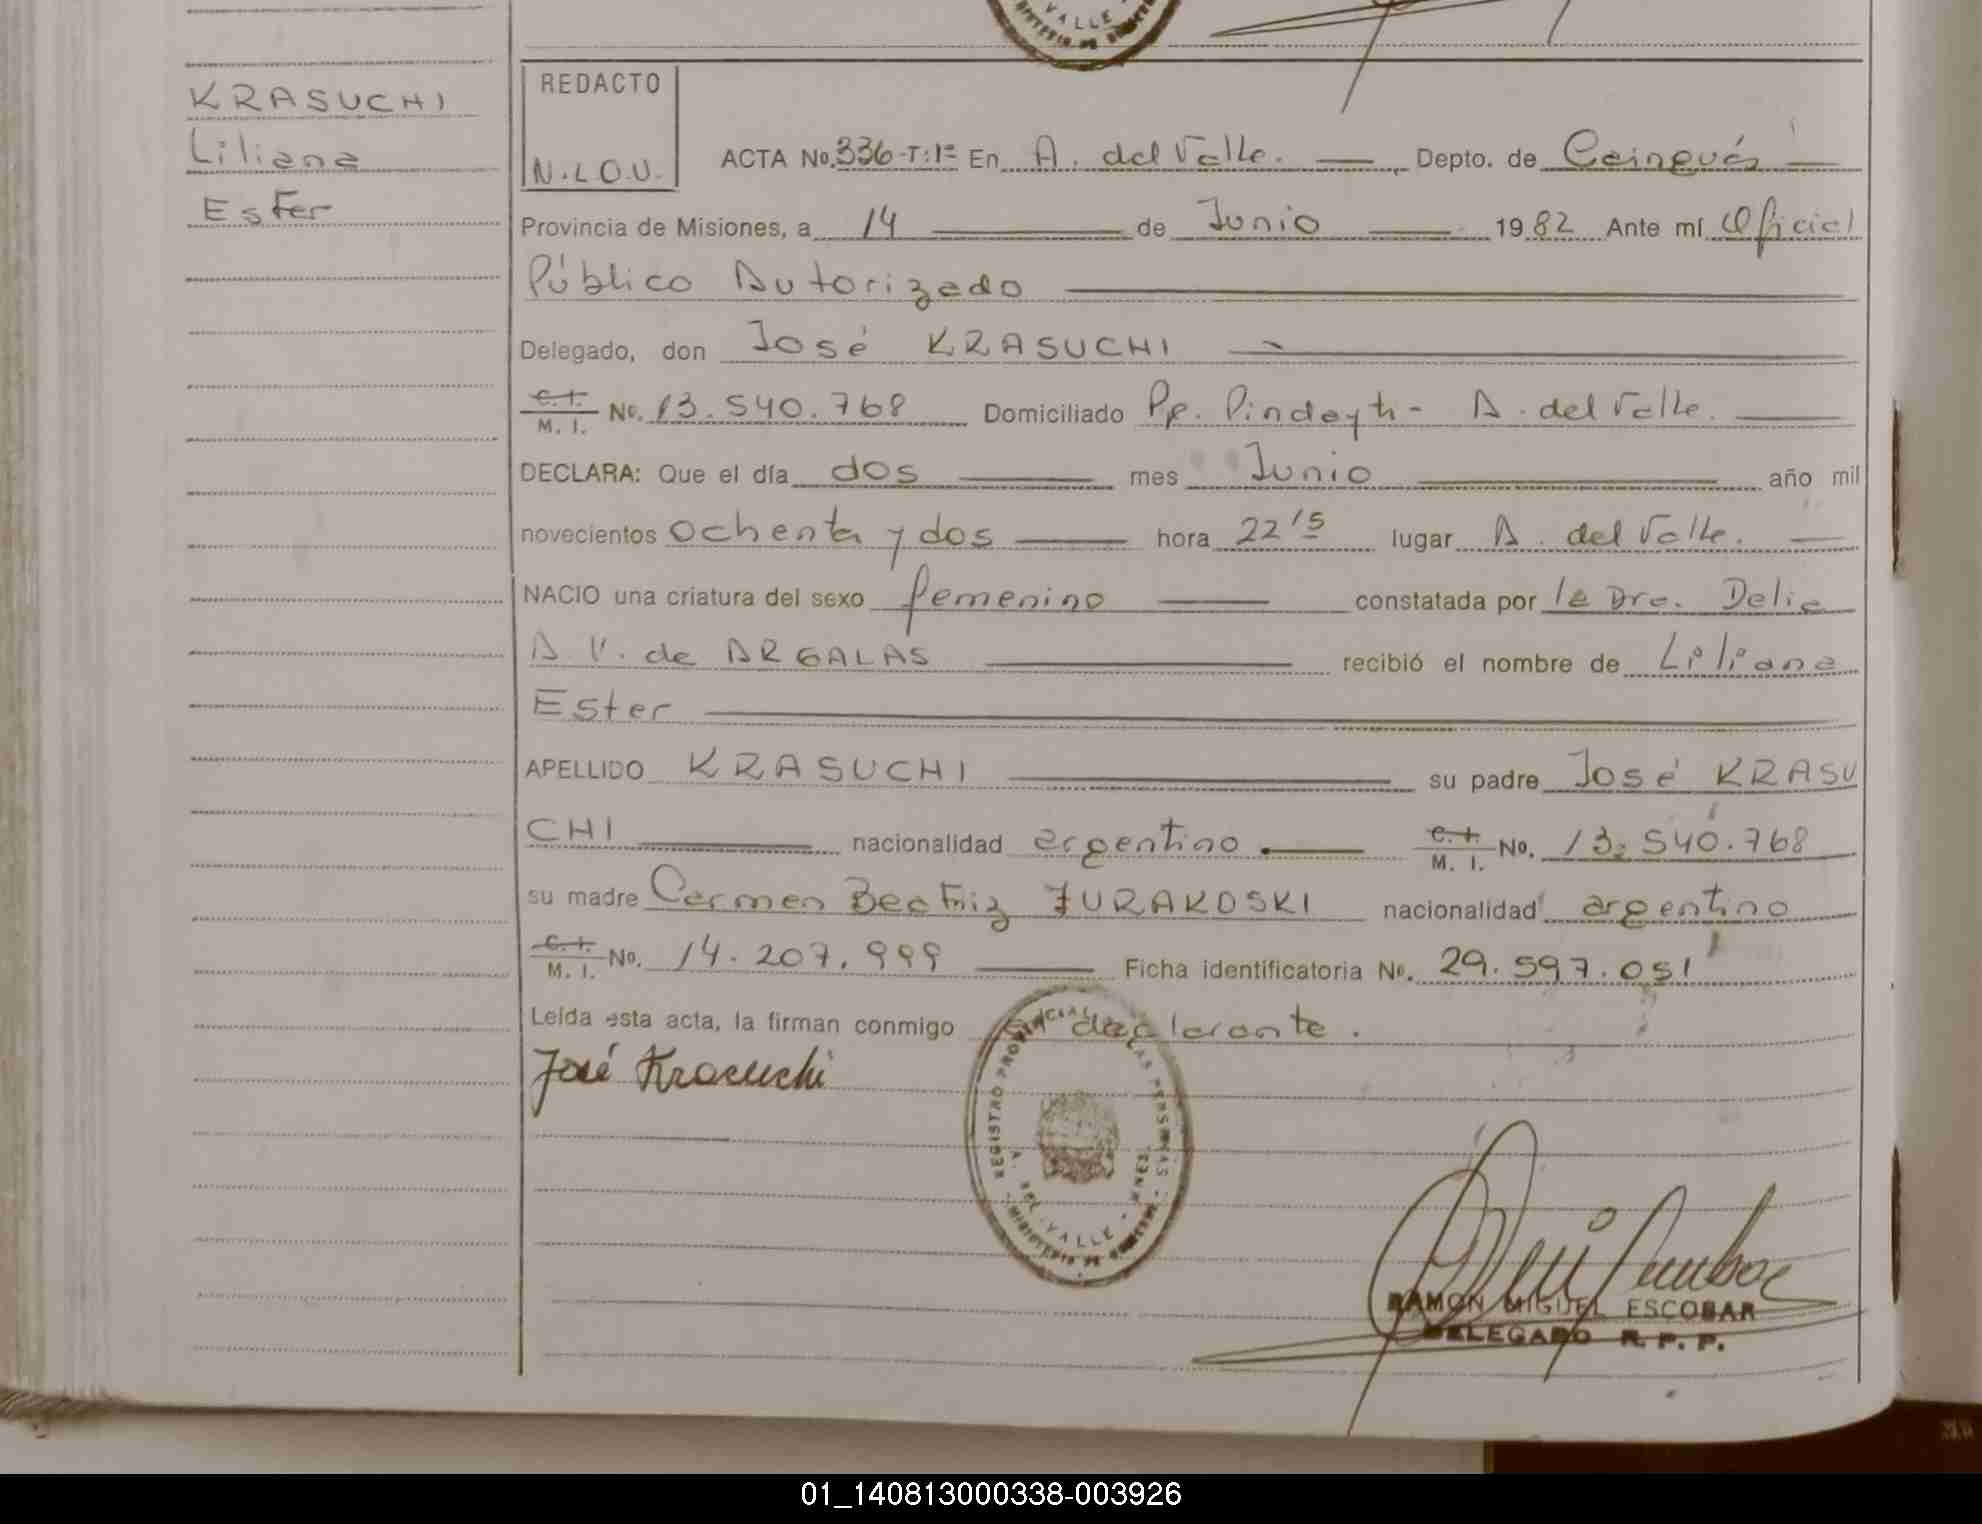 VALLE
KRASUCHI
Liliana
Ester
REDACTO
N.L.O.U.
ACTA No. 336-T:1º En A. del Valle. Depto. de Cainguás
Provincia de Misiones, a 14 de Junio 1982 Ante mí Oficial
Público Autorizado
Delegado, don José KRASUCHI
C.I. M. I. No. 13.540.768 Domiciliado Pje. Pindayti - A. del Valle.
DECLARA: Que el día dos mes Junio año mil
novecientos ochenta y dos hora 22 15 lugar A. del Valle.
NACIO una criatura del sexo femenino constatada por la Dra. Delia
A V. de ARGALAS recibió el nombre de Liliana
Ester
APELLIDO KRASUCHI su padre José KRASU
CHI nacionalidad argentino C.I. M. I. No. 13.540.768
su madre Carmen Beatriz ZURAKOSKI nacionalidad argentino
C.I. M. I. No. 14.207.999 Ficha identificatoria No. 29.597.051
Leída esta acta, la firman conmigo declarante.
José Krasuchi
REGISTRO PROVINCIAL DE LAS PERSONAS
A. DEL VALLE - MNES.
MINISTERIO DE GOBIERNO
RAMON MIGUEL ESCOBAR
DELEGADO R. P. P.
01_140813000338-003926